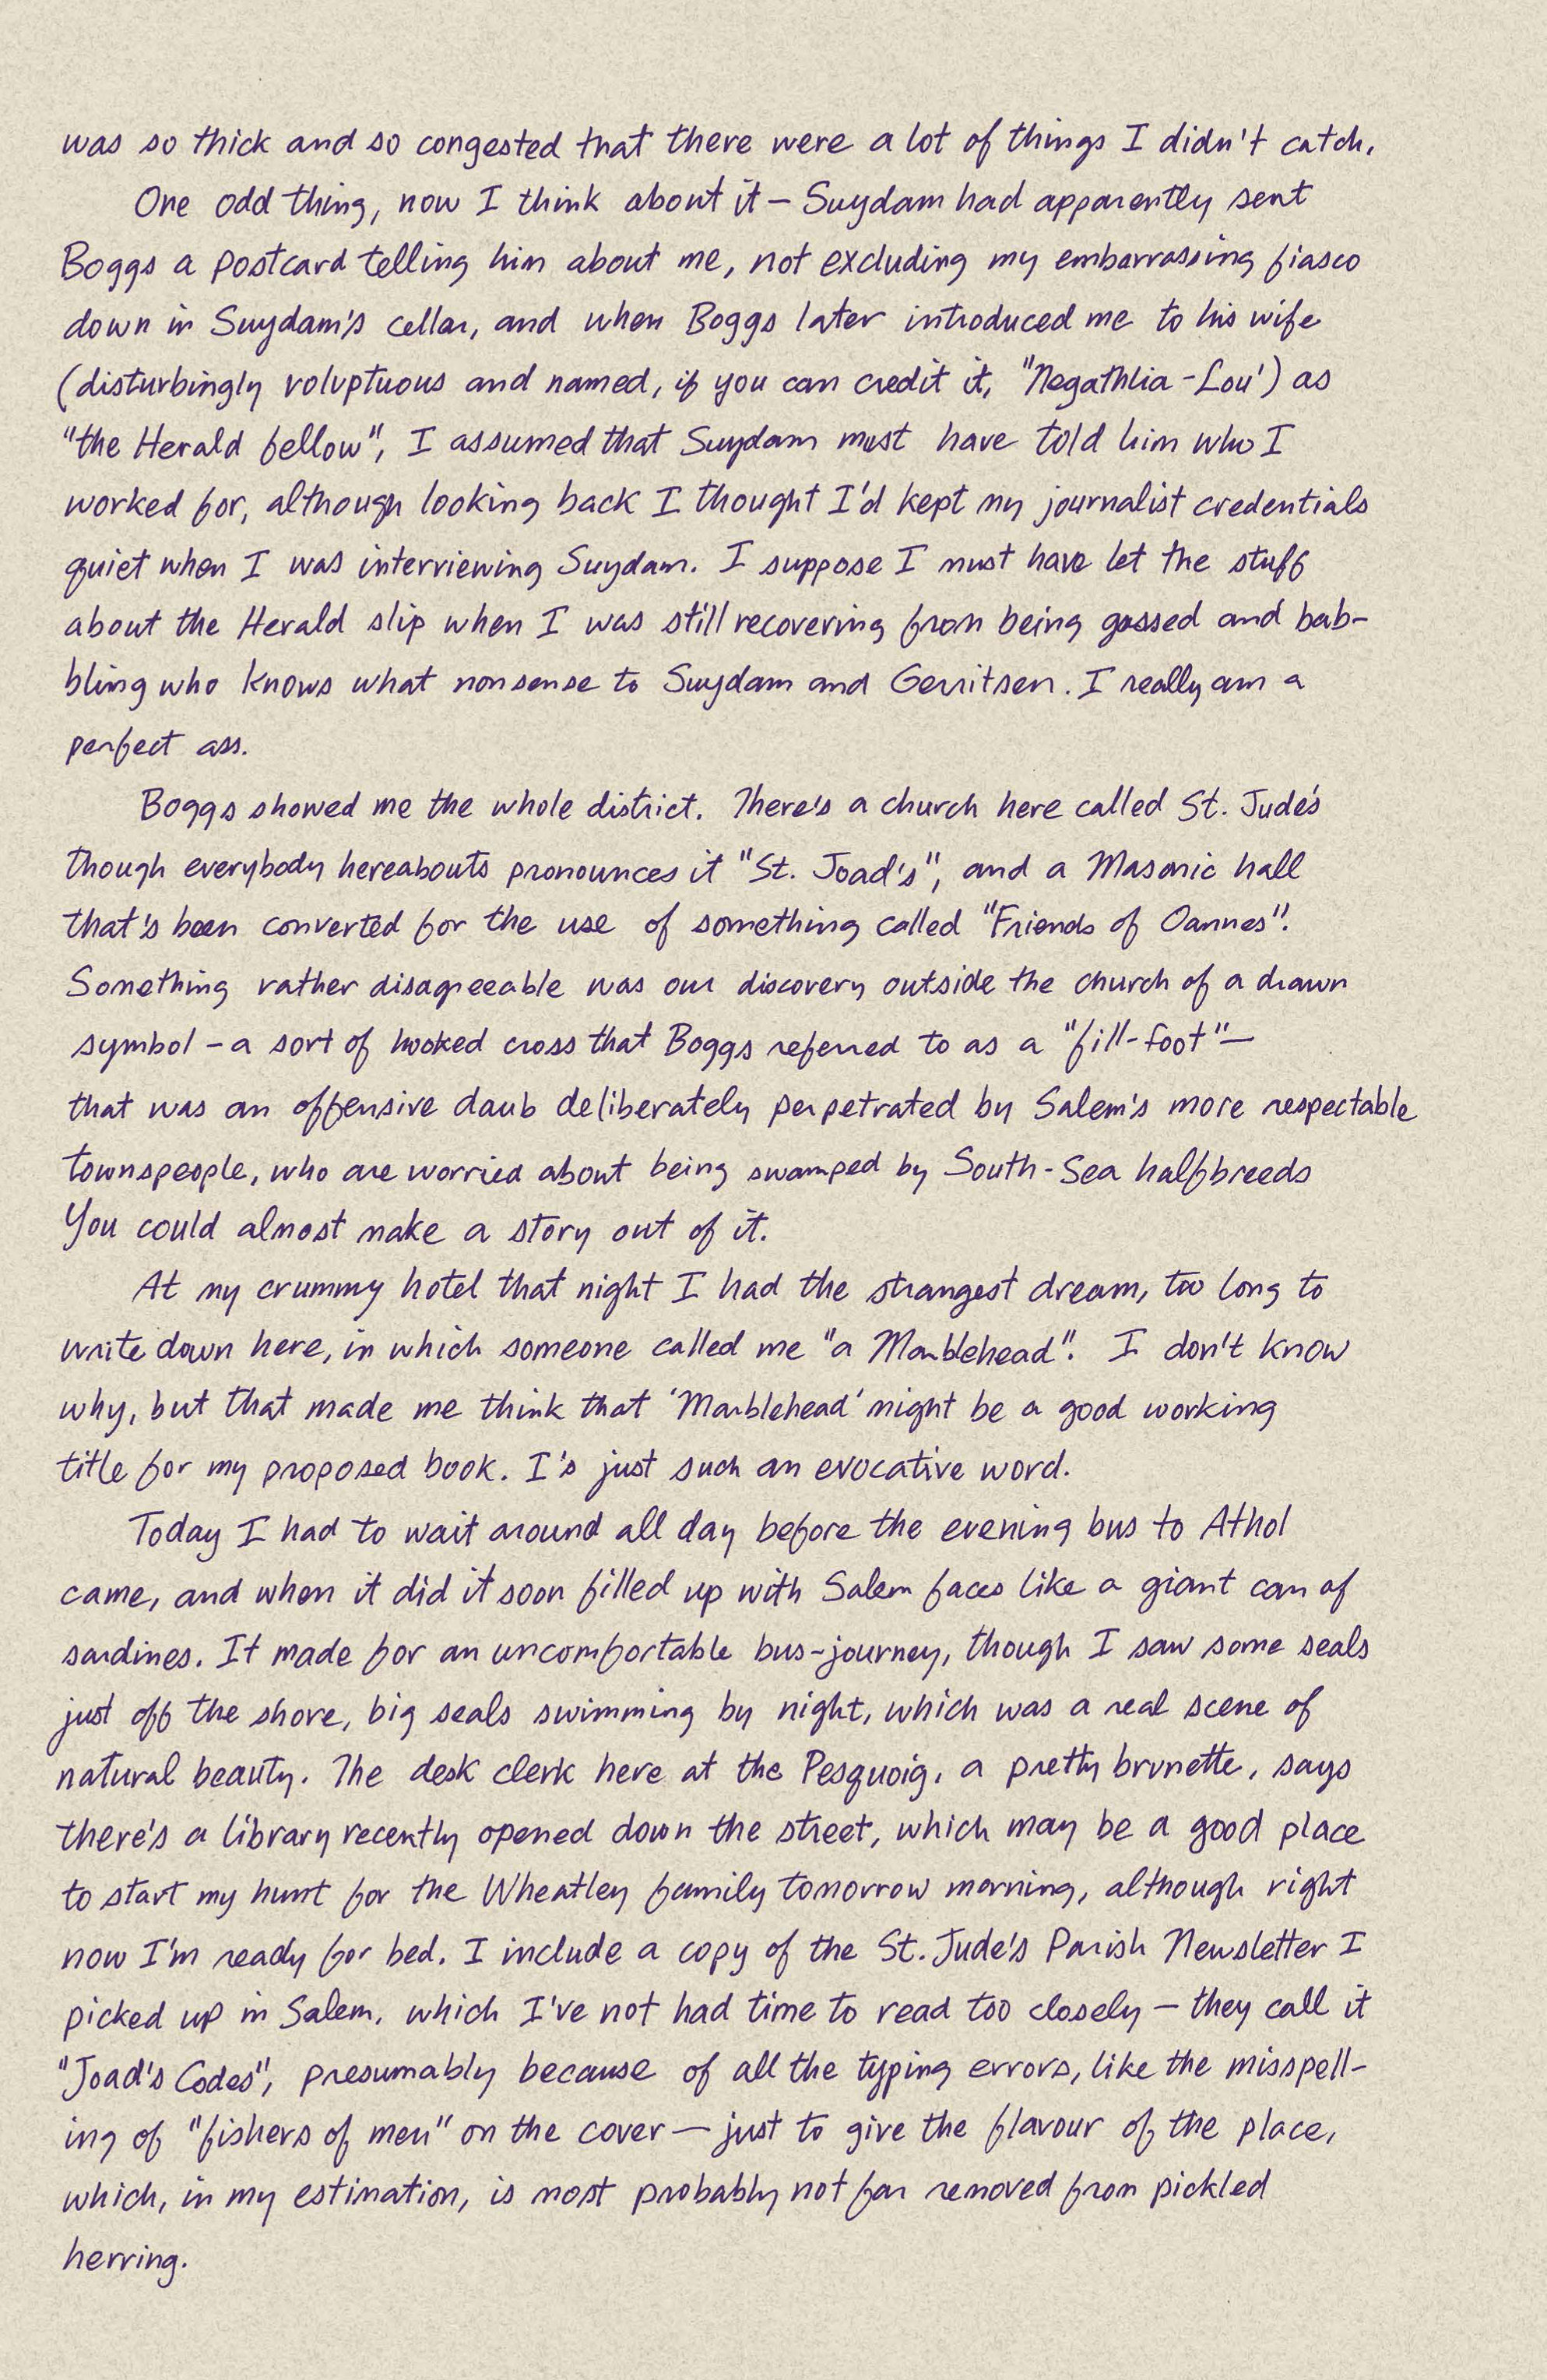 was so thick and so congested that there were a lot of things I didn't catch.
One odd thing, now I think about it – Suydam had apparently sent
Boggs a postcard telling him about me, not excluding my embarrassing fiasco
down in Suydam's cellar, and when Boggs later introduced me to his wife
(disturbingly voluptuous and named, if you can credit it, "Negathlia-Lou') as
"the Herald fellow", I assumed that Suydam must have told him who I
worked for, although looking back I thought I'd kept my journalist credentials
quiet when I was interviewing Suydam. I suppose I must have let the stuff
about the Herald slip when I was still recovering from being gassed and bab-
bling who knows what nonsense to Suydam and Gerritsen. I really am a
perfect ass.
Boggs showed me the whole district. There's a church here called St. Jude's
though everybody hereabouts pronounces it "St. Joad's", and a Masonic hall
that's been converted for the use of something called "Friends of Oannes".
Something rather disagreeable was our discovery outside the church of a drawn
symbol – a sort of hooked cross that Boggs referred to as a "fill-foot" —
that was an offensive daub deliberately perpetrated by Salem's more respectable
townspeople, who are worried about being swamped by South-Sea halfbreeds
You could almost make a story out of it.
At my crummy hotel that night I had the strangest dream, too long to
write down here, in which someone called me "a Marblehead". I don't know
why, but that made me think that 'Marblehead' might be a good working
title for my proposed book. I's just such an evocative word.
Today I had to wait around all day before the evening bus to Athol
came, and when it did it soon filled up with Salem faces like a giant can of
sardines. It made for an uncomfortable bus-journey, though I saw some seals
just off the shore, big seals swimming by night, which was a real scene of
natural beauty. The desk clerk here at the Pesquoig, a pretty brunette, says
there's a library recently opened down the street, which may be a good place
to start my hunt for the Wheatley family tomorrow morning, although right
now I'm ready for bed. I include a copy of the St. Jude's Parish Newsletter I
picked up in Salem, which I've not had time to read too closely — they call it
"Joad's Codes", presumably because of all the typing errors, like the misspell-
ing of "fishers of men" on the cover — just to give the flavour of the place,
which, in my estimation, is most probably not far removed from pickled
herring.